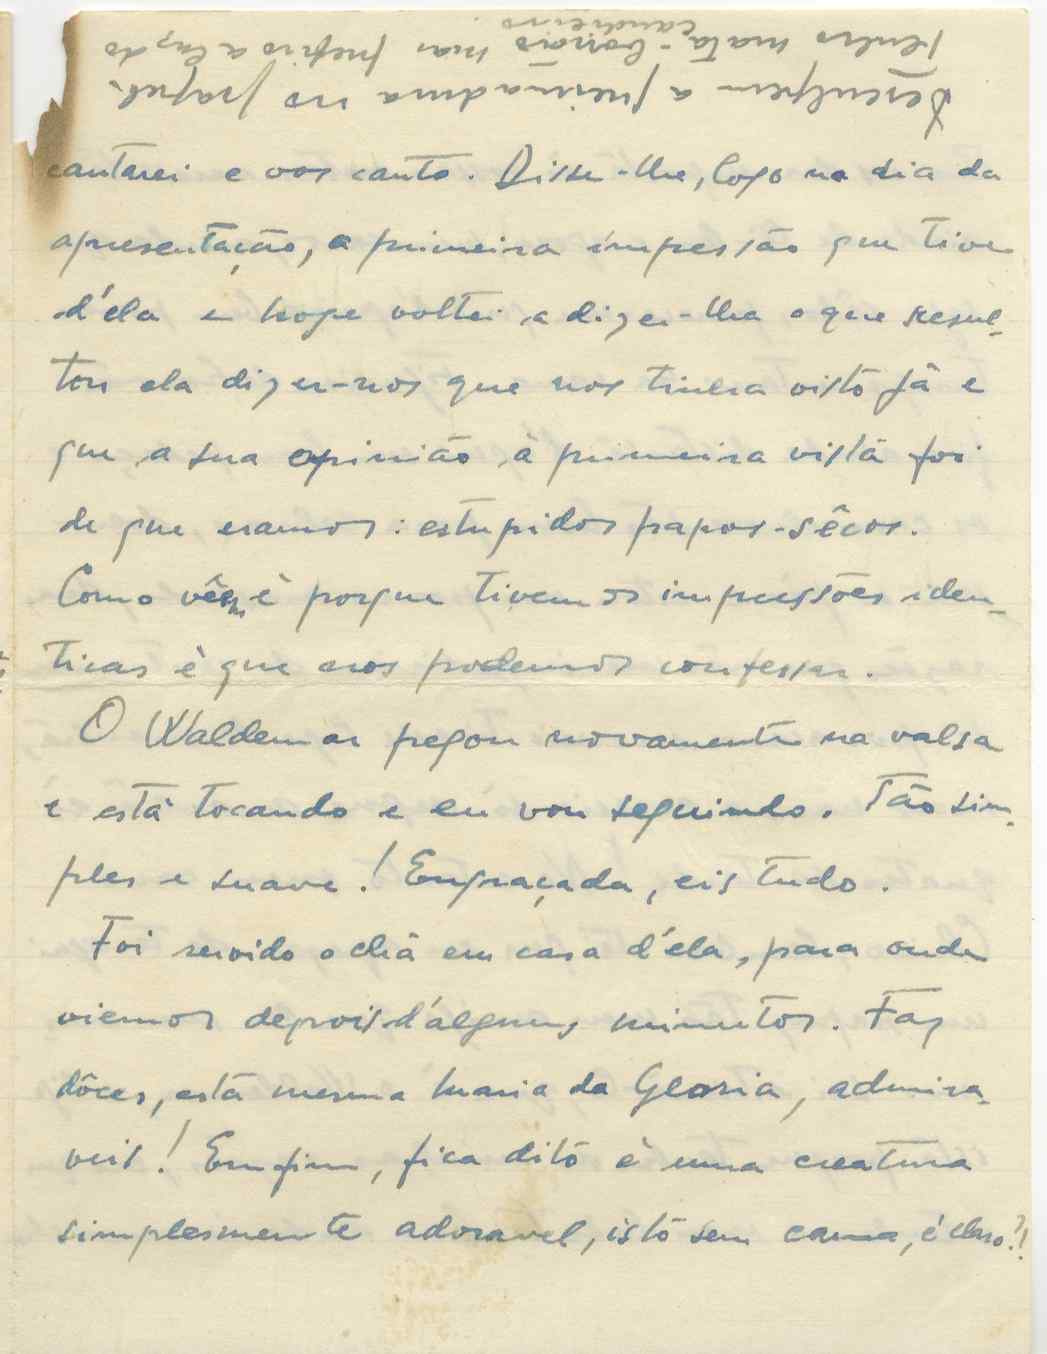 Desculpem a queimadura no papel.
Tenho mata-borrão mas prefiro a luz do
candieiro.
cantarei e vos canto. Disse-lhe, logo no dia da
apresentação, a primeira impressão que tive
d'éla e hoge voltei a dizer-lha o que resul-
tou ela dizer-nos que nos tinha visto já e
que a sua opinião à primeira vista foi
de que eramos: estupidos papos-sêcos.
Como vêem é porque tivemos impressões iden-
ticas è que nos podemos confessar.
O Waldemar pegou novamente na valsa
e está tocando e eu vou seguindo. Tão sim-
ples e suave! Engraçada, eis tudo.
Foi servido o chá em casa d'éla, para onde
viemos depois d'alguns minutos. Faz
dôces, esta mesma Maria da Gloria, admira-
veis! Emfim, fica dito é uma creatura
simplesmente adoravel, isto sem cama, é claro?!